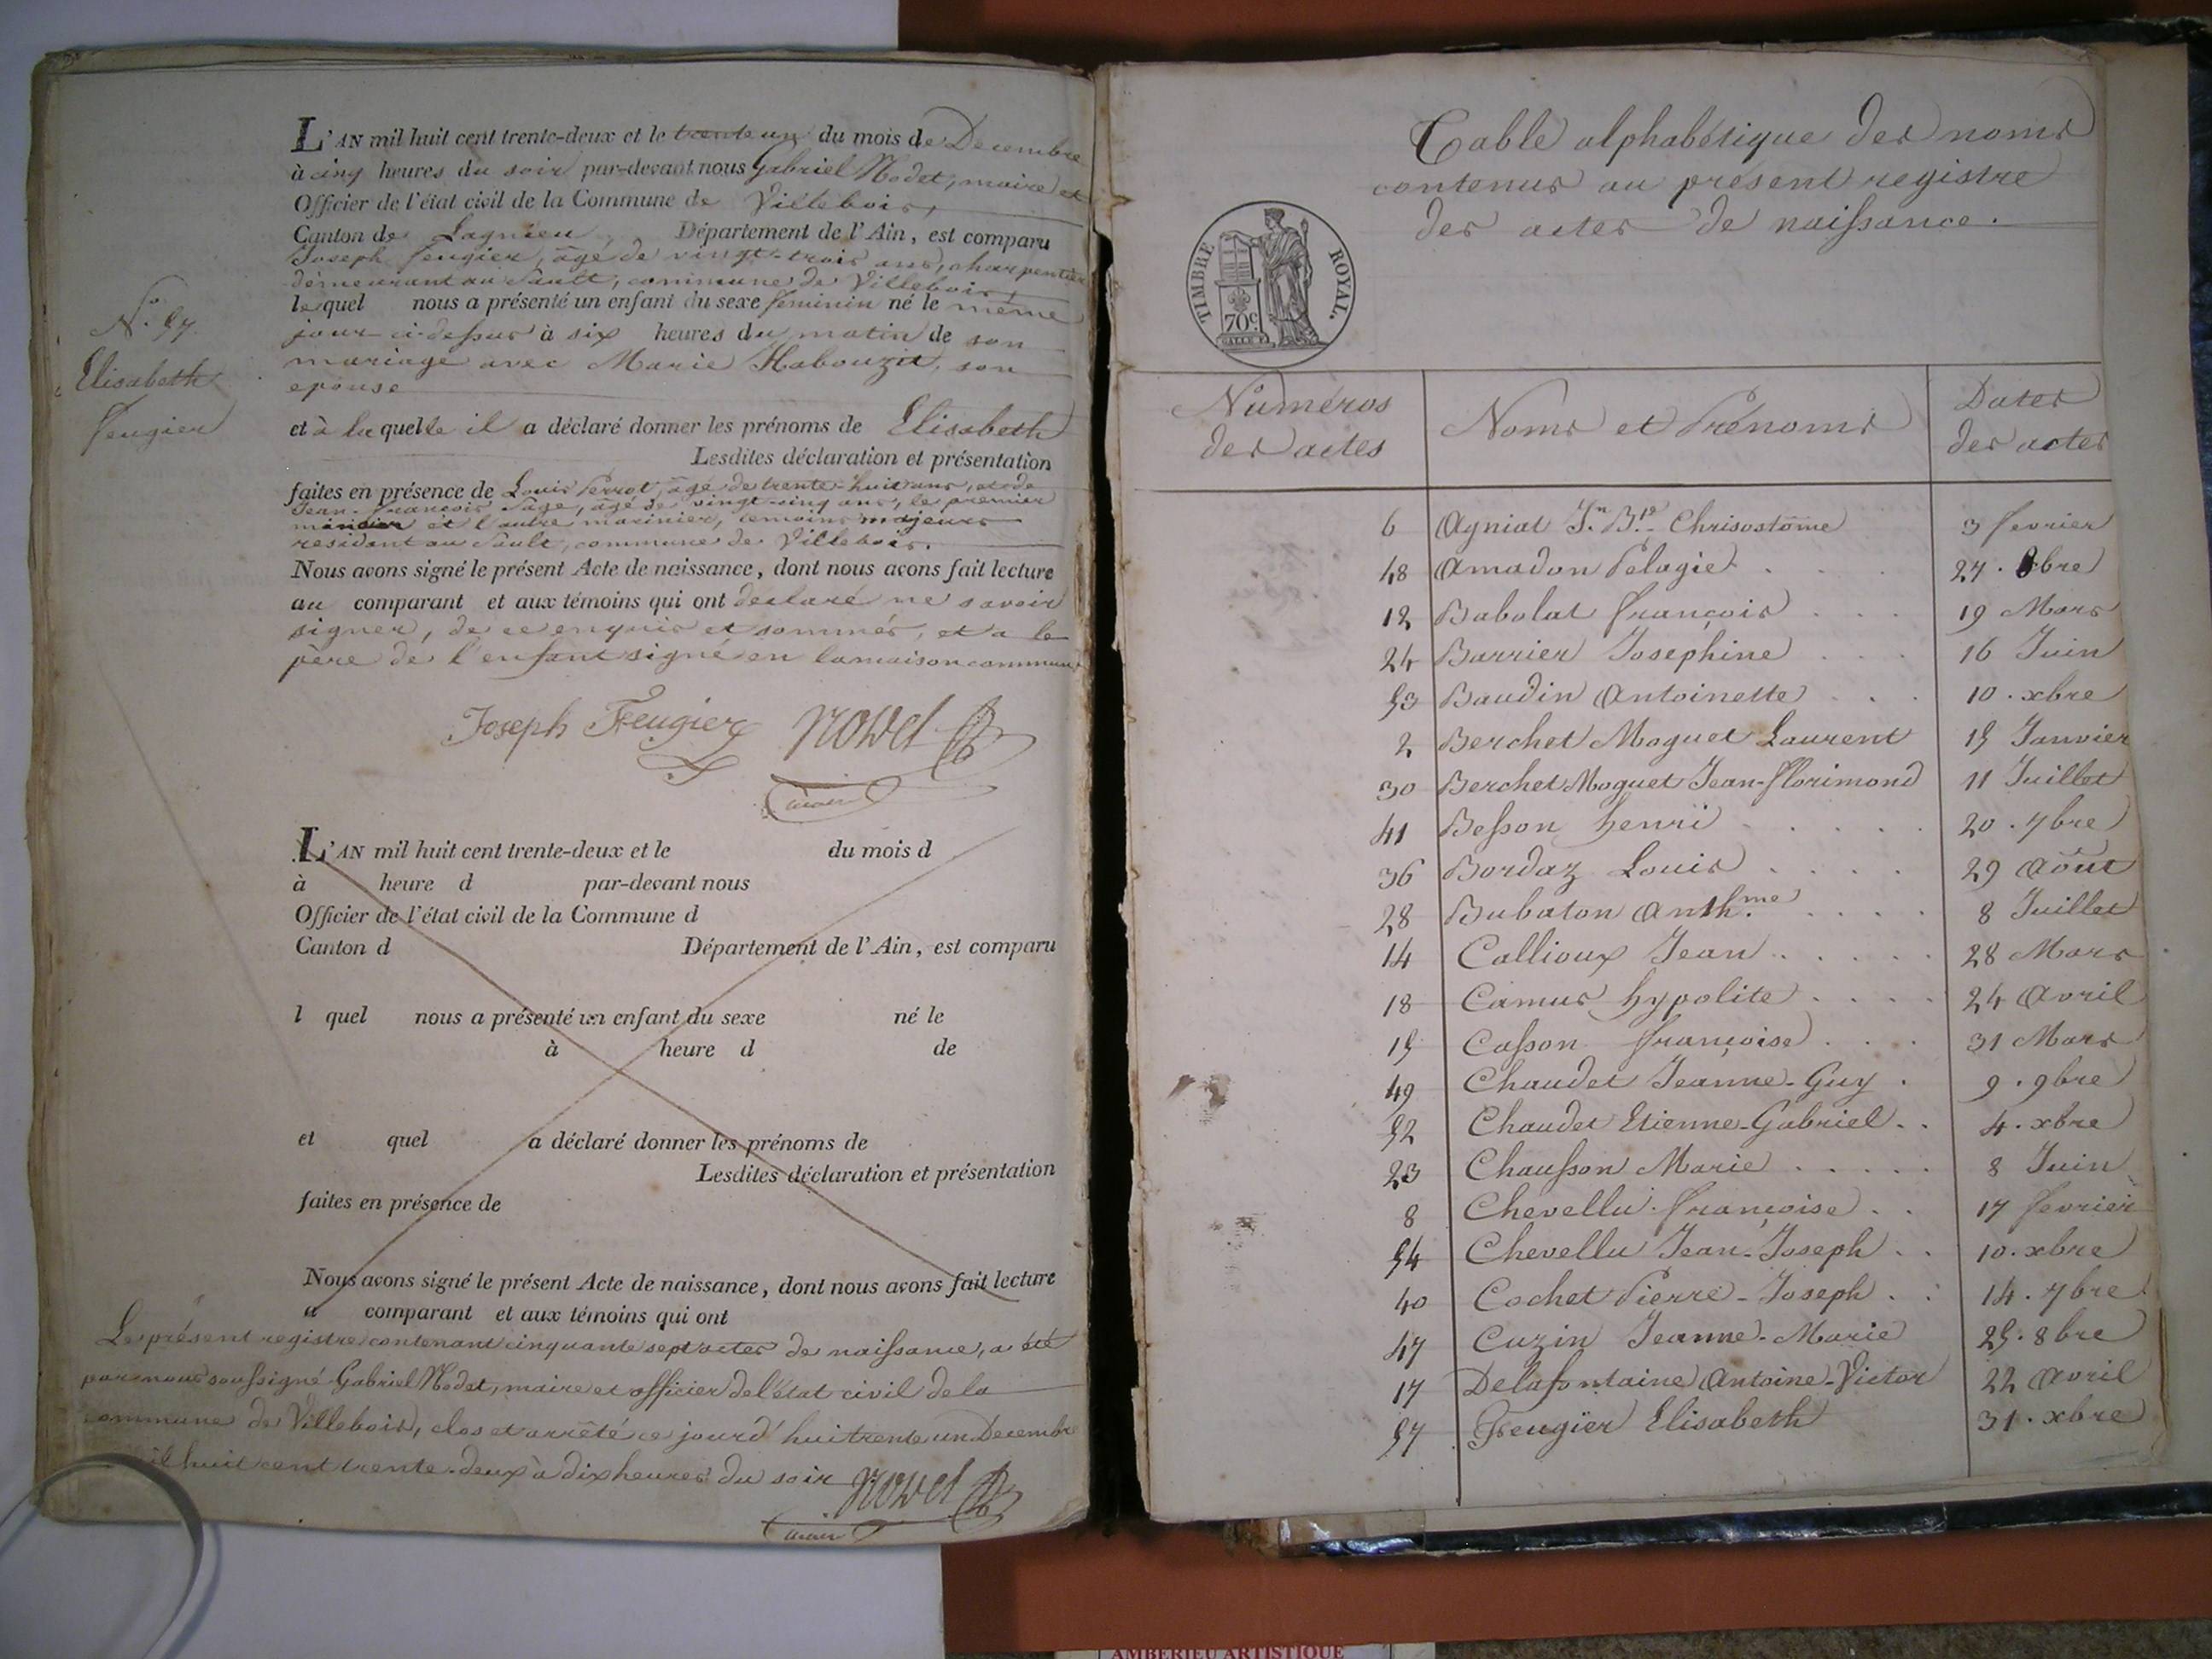 L'AN mil huit cent trente-deux et le trente un du mois de Decembre
à cinq heures du soir par-devant nous Gabriel Nodet, maire et
Officier de l'état civil de la Commune de Villebois,
Canton de Lagnieu, Département de l'Ain, est comparu
Joseph feugier, âgé de vingt-trois ans, charpentier
demeurant au Sault, commune de Villebois,
le quel nous a présenté un enfant du sexe feminin né le même
jour ci-dessus à six heures du matin de son
mariage avec Marie Habouzit, son
epouse
N.º 57.
Elisabeth
feugier
et à la quelle il a déclaré donner les prénoms de Elisabeth
Lesdites déclaration et présentation
faites en présence de Louis Perrot, âgé de trente-huit ans, et de
Jean-francois Sage, âgé de vingt-cinq ans, le premier
et l'autre marinier, temoins majeurs
residant au Sault, commune de Villebois.
Nous avons signé le présent Acte de naissance, dont nous avons fait lecture
au comparant et aux témoins qui ont declaré ne savoir
signer, de ce enquis et sommés, et a le
père de l'enfant signé en la maison commune
Joseph Feugier Nodet
maire
L'AN mil huit cent trente-deux et le du mois d
à heure d par-devant nous
Officier de l'état civil de la Commune d
Canton d Département de l'Ain, est comparu
l quel nous a présenté un enfant du sexe né le
à heure d de
et quel a déclaré donner les prénoms de
Lesdites déclaration et présentation
faites en présence de
Nous avons signé le présent Acte de naissance, dont nous avons fait lecture
a comparant et aux témoins qui ont
Le présent registre contenant cinquante sept actes de naissance, a été
par nous soussigné Gabriel Nodet, maire et officier de l'état civil de la
commune de Villebois, clos et arrêté ce jourd'hui trente un Decembre
mil huit cent trente-deux à dix heures du soir Nodet
maire
Table alphabétique des noms
contenus au présent registre
des actes de naissance.
TIMBRE ROYAL.
70c
Numéros des actes Noms et Prénoms Dates des actes
6 Agniat Jn. Bte. Chrisostôme 3 fevrier
48 Amadon Pelagie 27. 8bre
12 Babolat françois 19 Mars
24 Barrier Josephine 16 Juin
53 Baudin Antoinette 10. xbre
2 Berchet Moguet Laurent 15 Janvier
30 Berchet Moguet Jean-florimond 11 Juillet
41 Besson henri 20. 7bre
36 Bordaz Louis 29 Août
28 Bubaton Anth.me 8 Juillet
14 Callioux Jean 28 Mars
18 Camus hypolite 24 Avril
15 Casson françoise 31 Mars
49 Chaudet Jeanne-Guy 9. 9bre
52 Chaudet Etienne-Gabriel 4. xbre
23 Chausson Marie 8 Juin
8 Chevellu françoise 17 fevrier
54 Chevellu Jean-Joseph 10. xbre
40 Cochet Pierre-Joseph 14. 7bre
47 Cuzin Jeanne-Marie 25. 8bre
17 Delafontaine Antoine-Victor 22 Avril
57 Feugier Elisabeth 31. xbre
AMBERIEU ARTISTIQUE